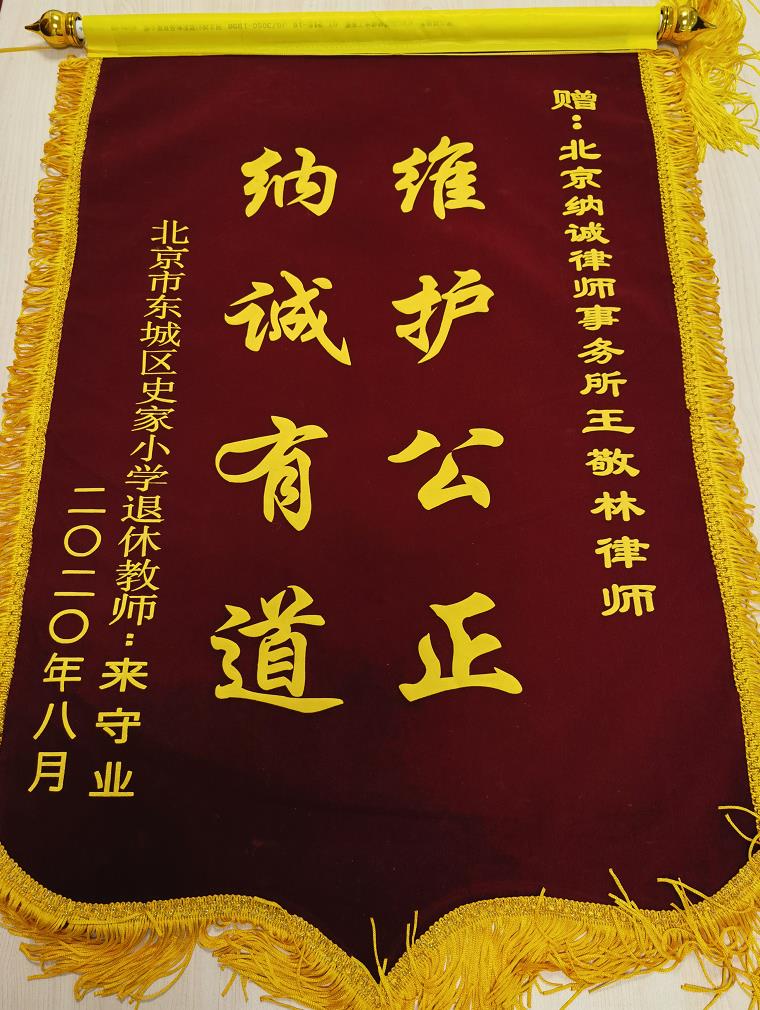 赠：北京纳诚律师事务所王敬林律师
维护公正
纳诚有道
北京市东城区史家小学退休教师：来守业
二〇二〇年八月